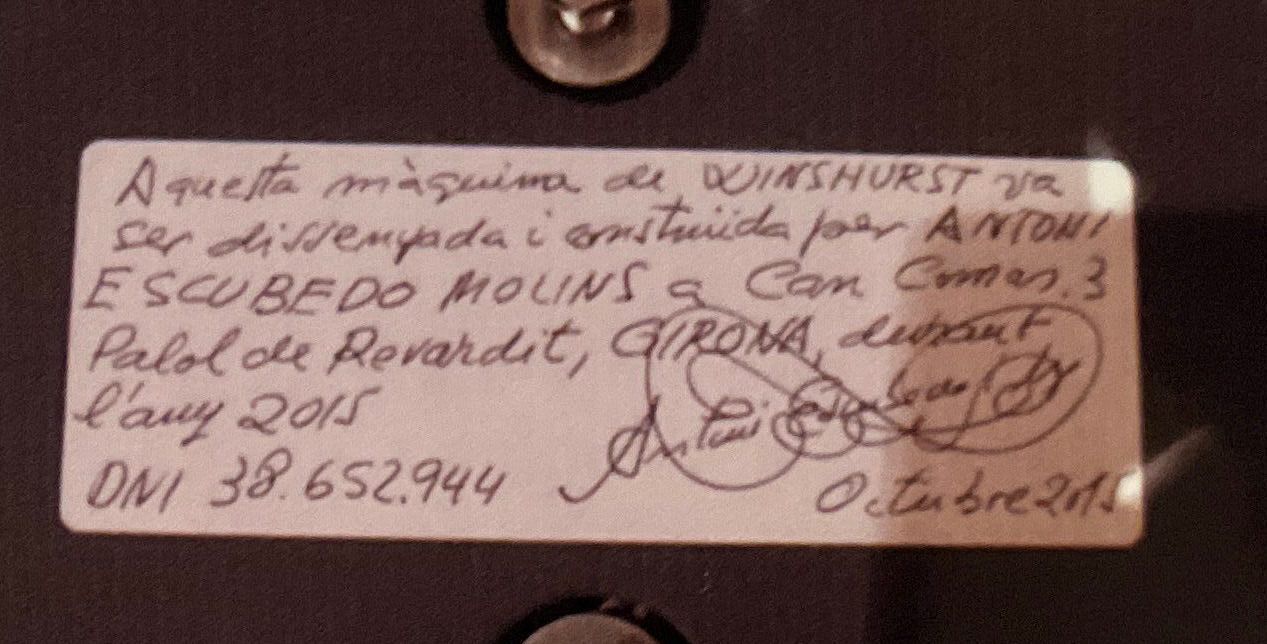 Aquesta màquina de WINSHURST va
ser dissenyada i construïda per ANTONI
ESCUBEDO MOLINS a Can Comas, 3
Palol de Revardit, GIRONA, durant
l'any 2015
Antoni Escubedo
DNI 38.652.944
Octubre 2015